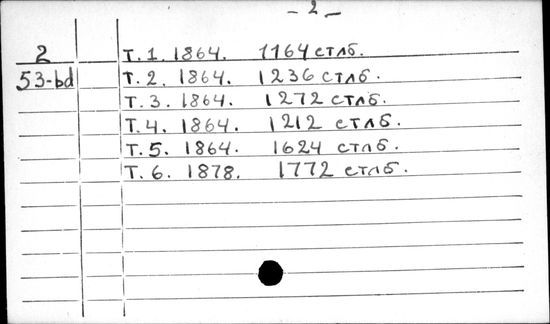 - 2 -
2 Т. 1. 1864. 1164 стлб.
53-bd Т. 2. 1864. 1236 стлб.
Т. 3. 1864. 1272 стлб.
Т. 4. 1864. 1212 стлб.
Т. 5. 1864. 1624 стлб.
Т. 6. 1878. 1772 стлб.